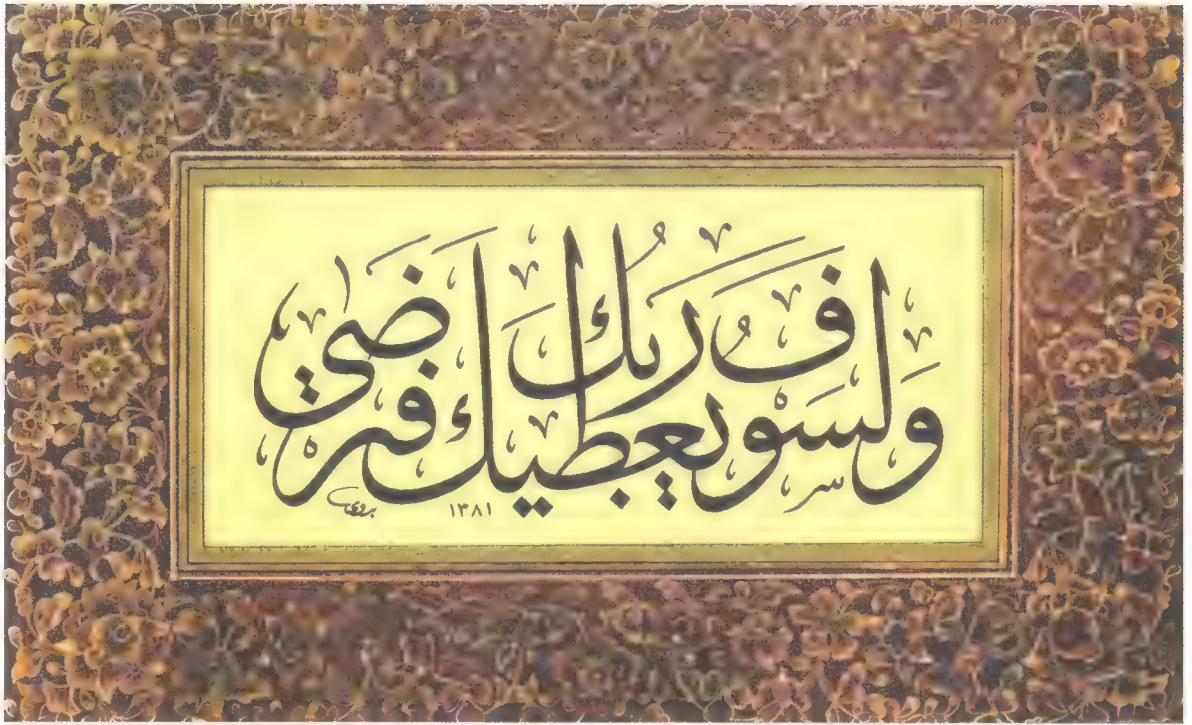 ولسوف يعطيك ربك فترضى
١٣٨١